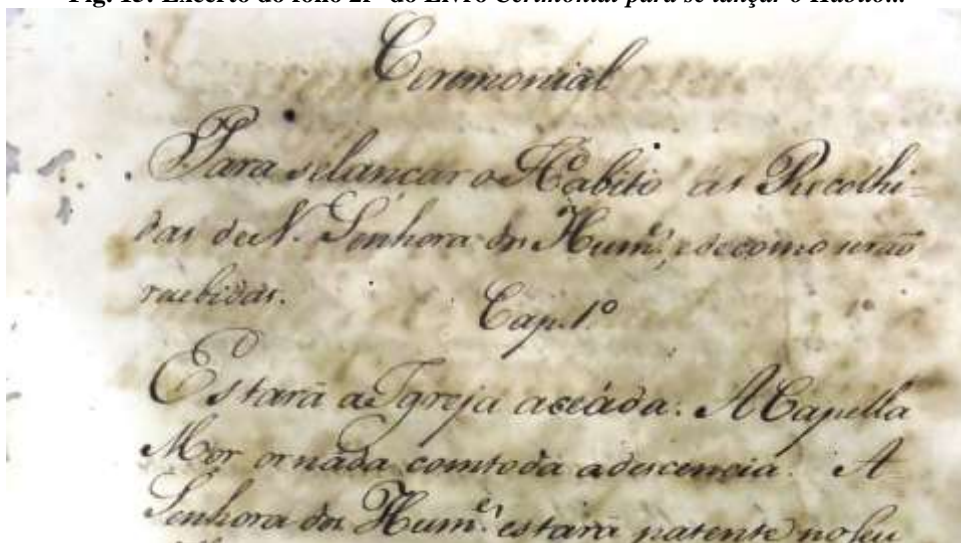 Fig. 13: Excerto do fólio 21º do Livro Cerimonial para se lançar o Hábito...
Ceremonial
Para selançar o Habito as Recolhi-
das de N. Senhora dos Hum.es, e de como serão
recebidas.
Cap. 1º
Estará a Igreja aceáda. A Capella
Mor ornada comtoda adescencia. A
Senhora dos Hum.es estara patente no seu